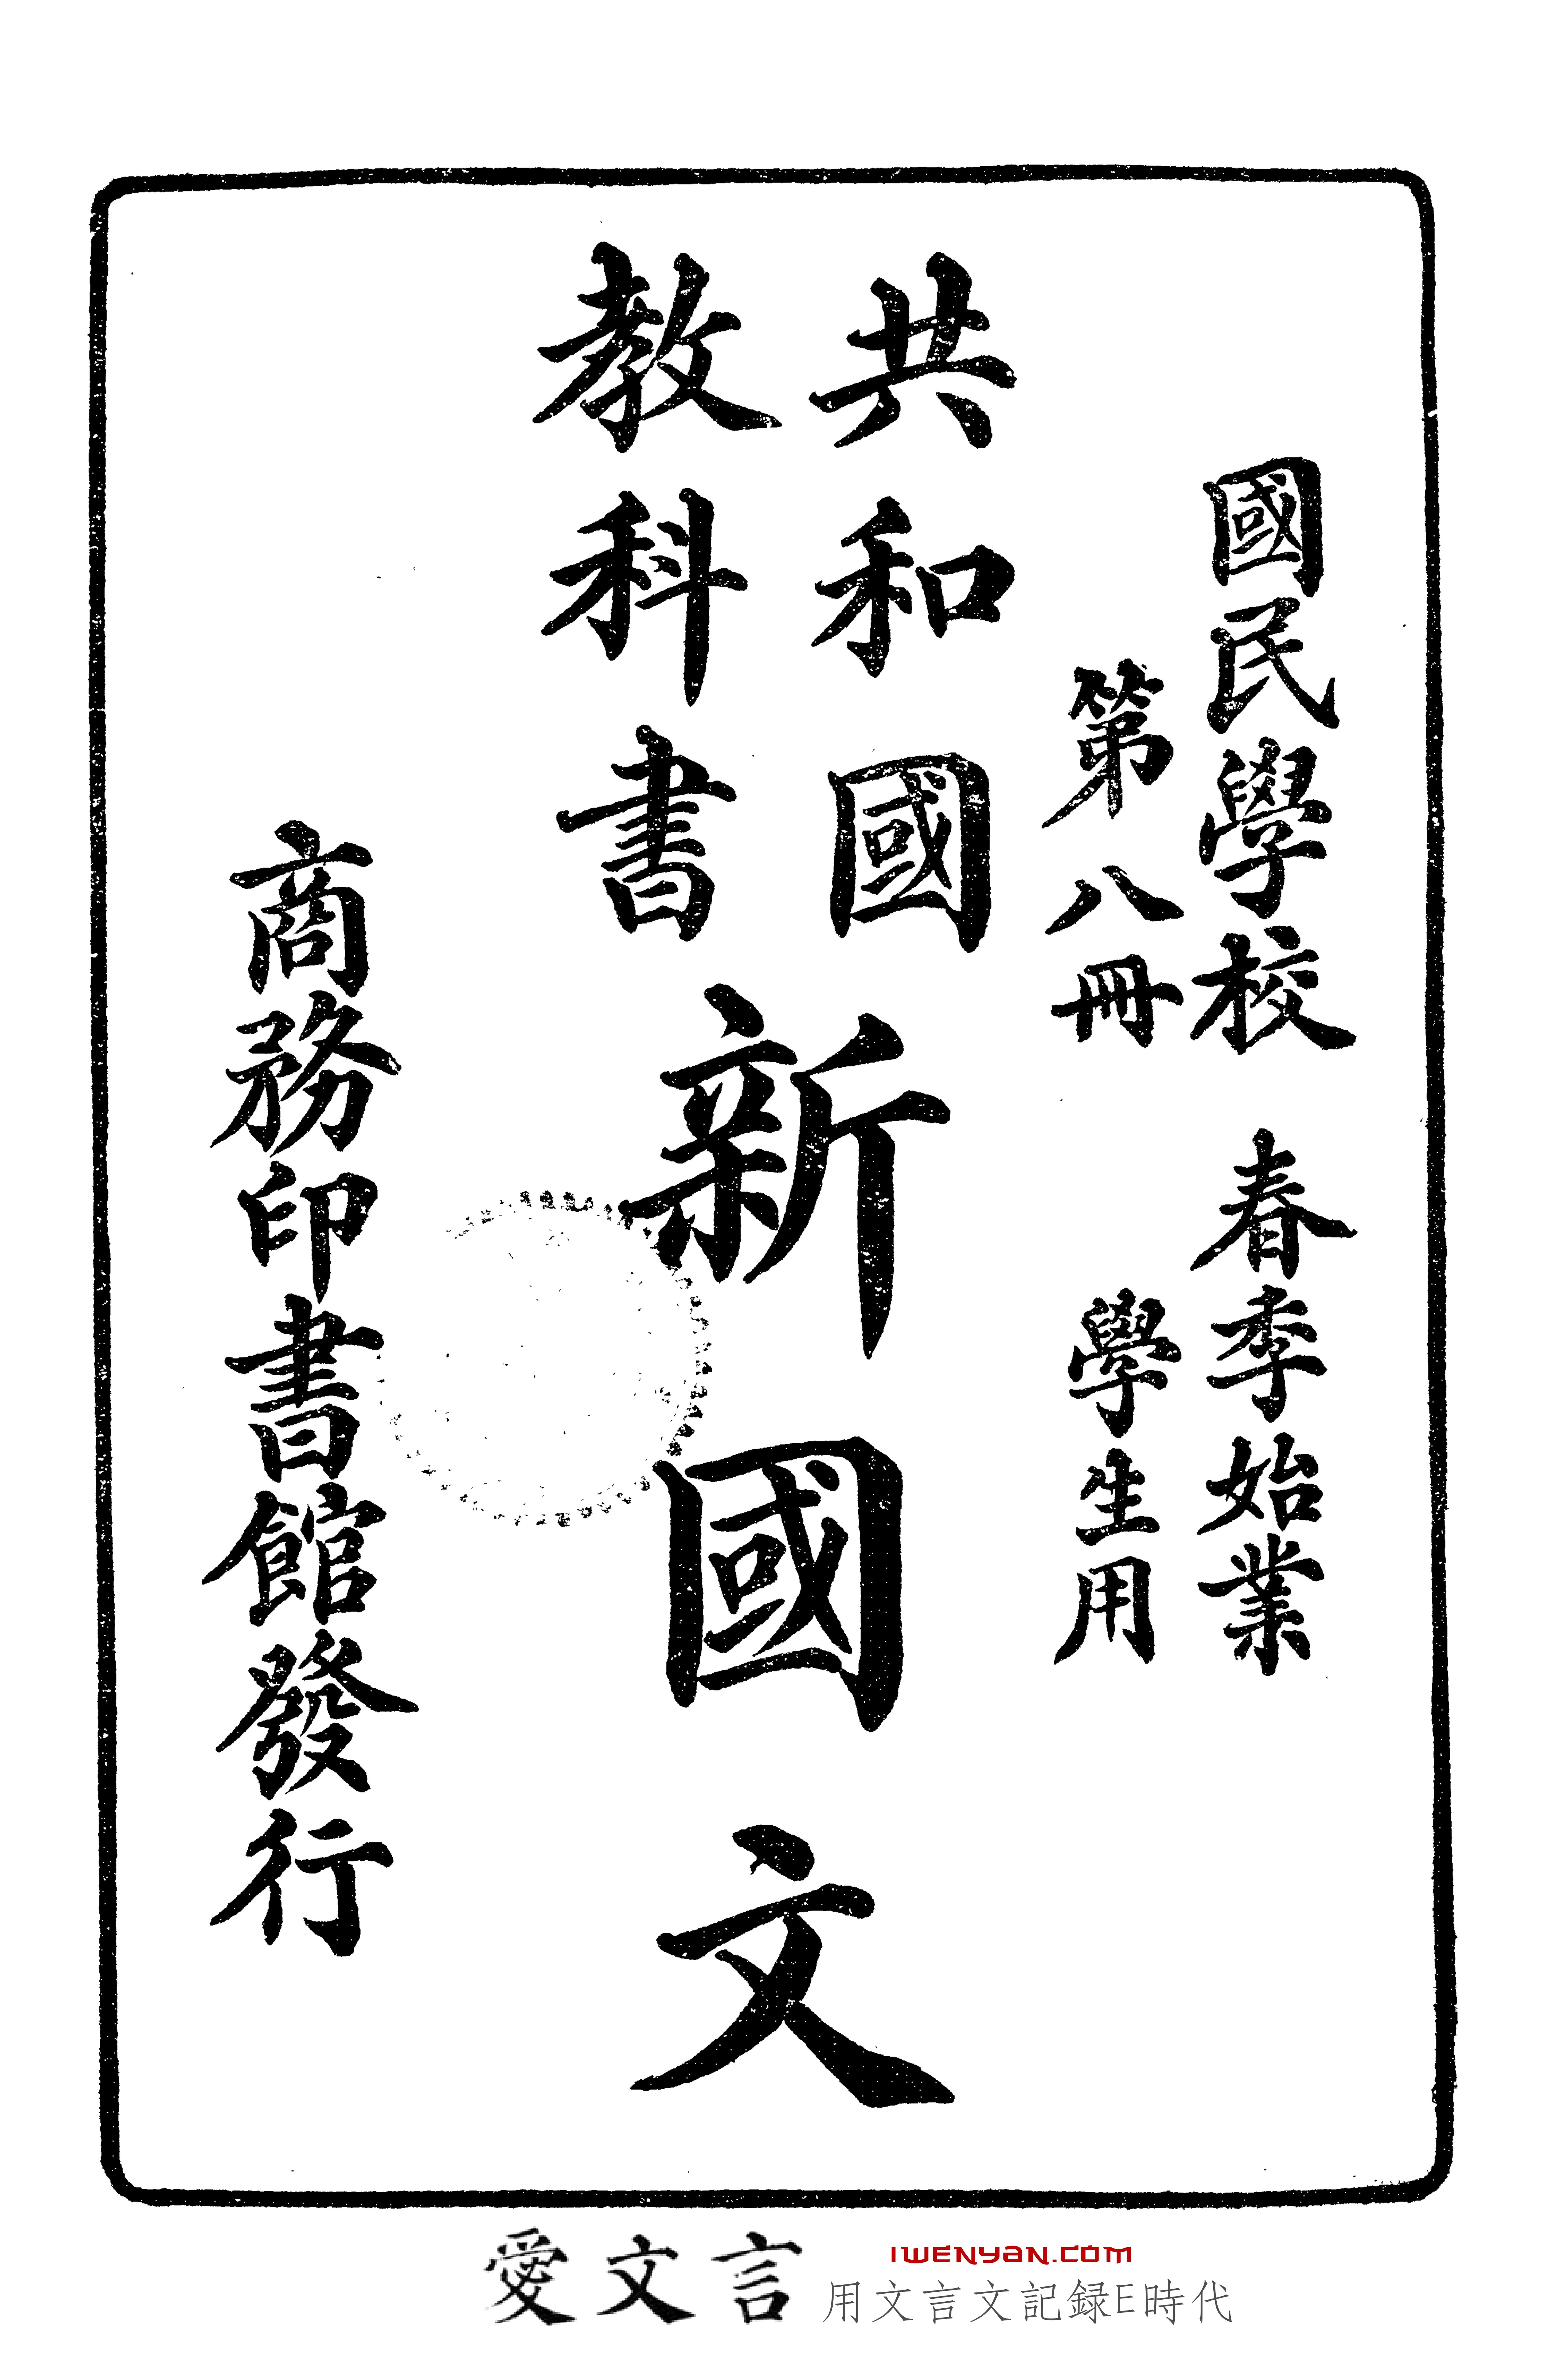 國民學校 春季始業
第八冊 學生用
共和國
教科書
新國文
商務印書館發行
愛文言
IWENYAN.COM
用文言文記録E時代